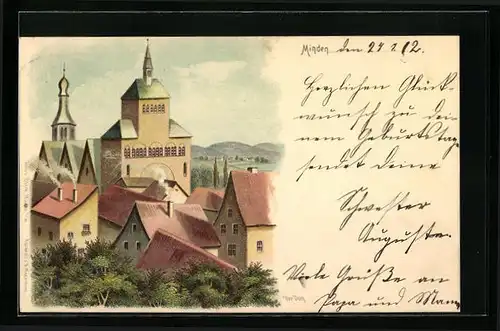 Minden, den 24.2.12.
Herzlichen Glück-
wunsch zu dei-
nem Geburtstag
sendet deine
Schwester
Auguste.
Viele Grüße an
Papa und Mama
Der Dom